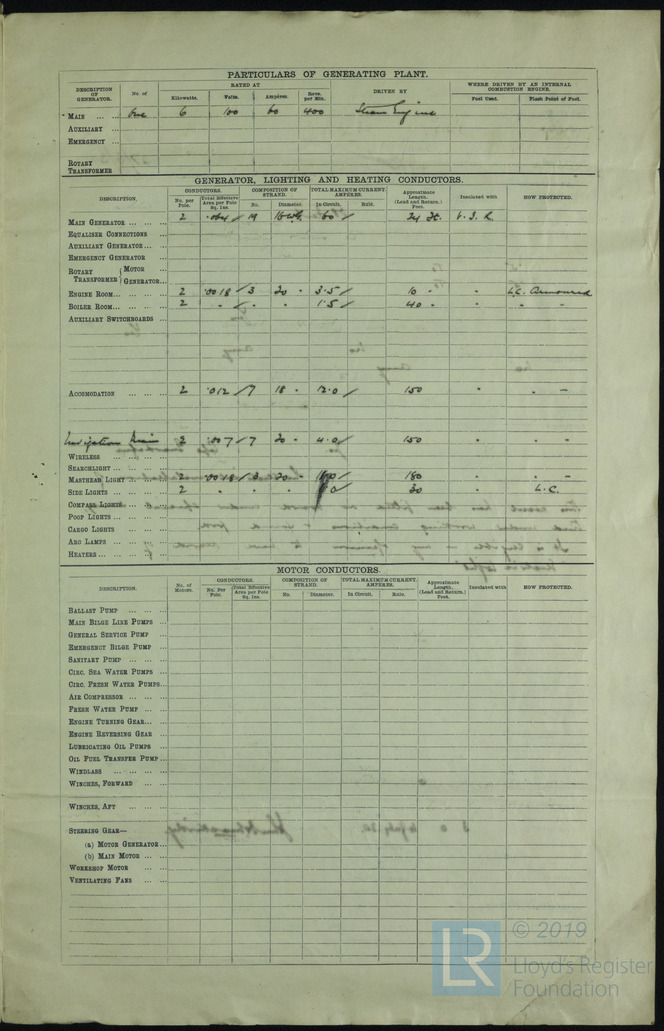 PARTICULARS OF GENERATING PLANT.
DESCRIPTION OF GENERATOR. No. of RATED AT DRIVEN BY WHERE DRIVEN BY AN INTERNAL COMBUSTION ENGINE.
Kilowatts. Volts. Ampères. Revs. per Min. Fuel Used. Flash Point of Fuel.
MAIN ... One 6 100 60 400 Steam Engine
AUXILIARY ...
EMERGENCY ...
ROTARY TRANSFORMER
GENERATOR, LIGHTING AND HEATING CONDUCTORS.
DESCRIPTION. CONDUCTORS. COMPOSITION OF STRAND. TOTAL MAXIMUM CURRENT. AMPERES. Approximate Length. (Lead and Return.) Feet. Insulated with HOW PROTECTED.
No. per Pole. Total Effective Area per Pole Sq. Ins. No. Diameter. In Circuit. Rule.
MAIN GENERATOR ... ... ... 2 .064 / 19 60 / 24 V.I.R.
EQUALISER CONNECTIONS ... ...
AUXILIARY GENERATOR ... ...
EMERGENCY GENERATOR ...
ROTARY TRANSFORMER { MOTOR ...
GENERATOR...
ENGINE ROOM... ... ... ... 2 .0018 / 3 20 " 3.5 / 10 " " L.C. Armoured
BOILER ROOM... ... ... ... 2 " " " 1.5 / 40 " " " "
AUXILIARY SWITCHBOARDS ...
ACCOMODATION ... ... ... 2 .012 / 7 18 " 12.0 / 150 " " -
Navigation Main 2 .007 / 7 20 " 4.0 / 150 " " -
WIRELESS ... ... ...
SEARCHLIGHT ... ... ...
MASTHEAD LIGHT ... ... ... 2 .0018 / 3 20 " / 180 " " -
SIDE LIGHTS ... ... 2 " " " / 30 " L.C.
COMPASS LIGHTS ... ...
POOP LIGHTS ... ... ...
CARGO LIGHTS ... ...
ARC LAMPS ... ... ...
HEATERS ... ... ... ...
MOTOR CONDUCTORS.
DESCRIPTION. No. of Motors. CONDUCTORS. COMPOSITION OF STRAND. TOTAL MAXIMUM CURRENT. AMPERES. Approximate Length. (Lead and Return.) Feet. Insulated with HOW PROTECTED.
No. Per Pole. Total Effective Area per Pole Sq. Ins. No. Diameter. In Circuit. Rule.
BALLAST PUMP ... ... ...
MAIN BILGE LINE PUMPS ...
GENERAL SERVICE PUMP ...
EMERGENCY BILGE PUMP ...
SANITARY PUMP ... ... ...
CIRC. SEA WATER PUMPS ...
CIRC. FRESH WATER PUMPS...
AIR COMPRESSOR ... ... ...
FRESH WATER PUMP ... ...
ENGINE TURNING GEAR... ...
ENGINE REVERSING GEAR ...
LUBRICATING OIL PUMPS ...
OIL FUEL TRANSFER PUMP ...
WINDLASS ... ... ... ...
WINCHES, FORWARD ... ...
WINCHES, AFT ... ... ...
STEERING GEAR—
(a) MOTOR GENERATOR...
(b) MAIN MOTOR ... ...
WORKSHOP MOTOR ... ...
VENTILATING FANS ... ...
LR
© 2019
Lloyd's Register
Foundation